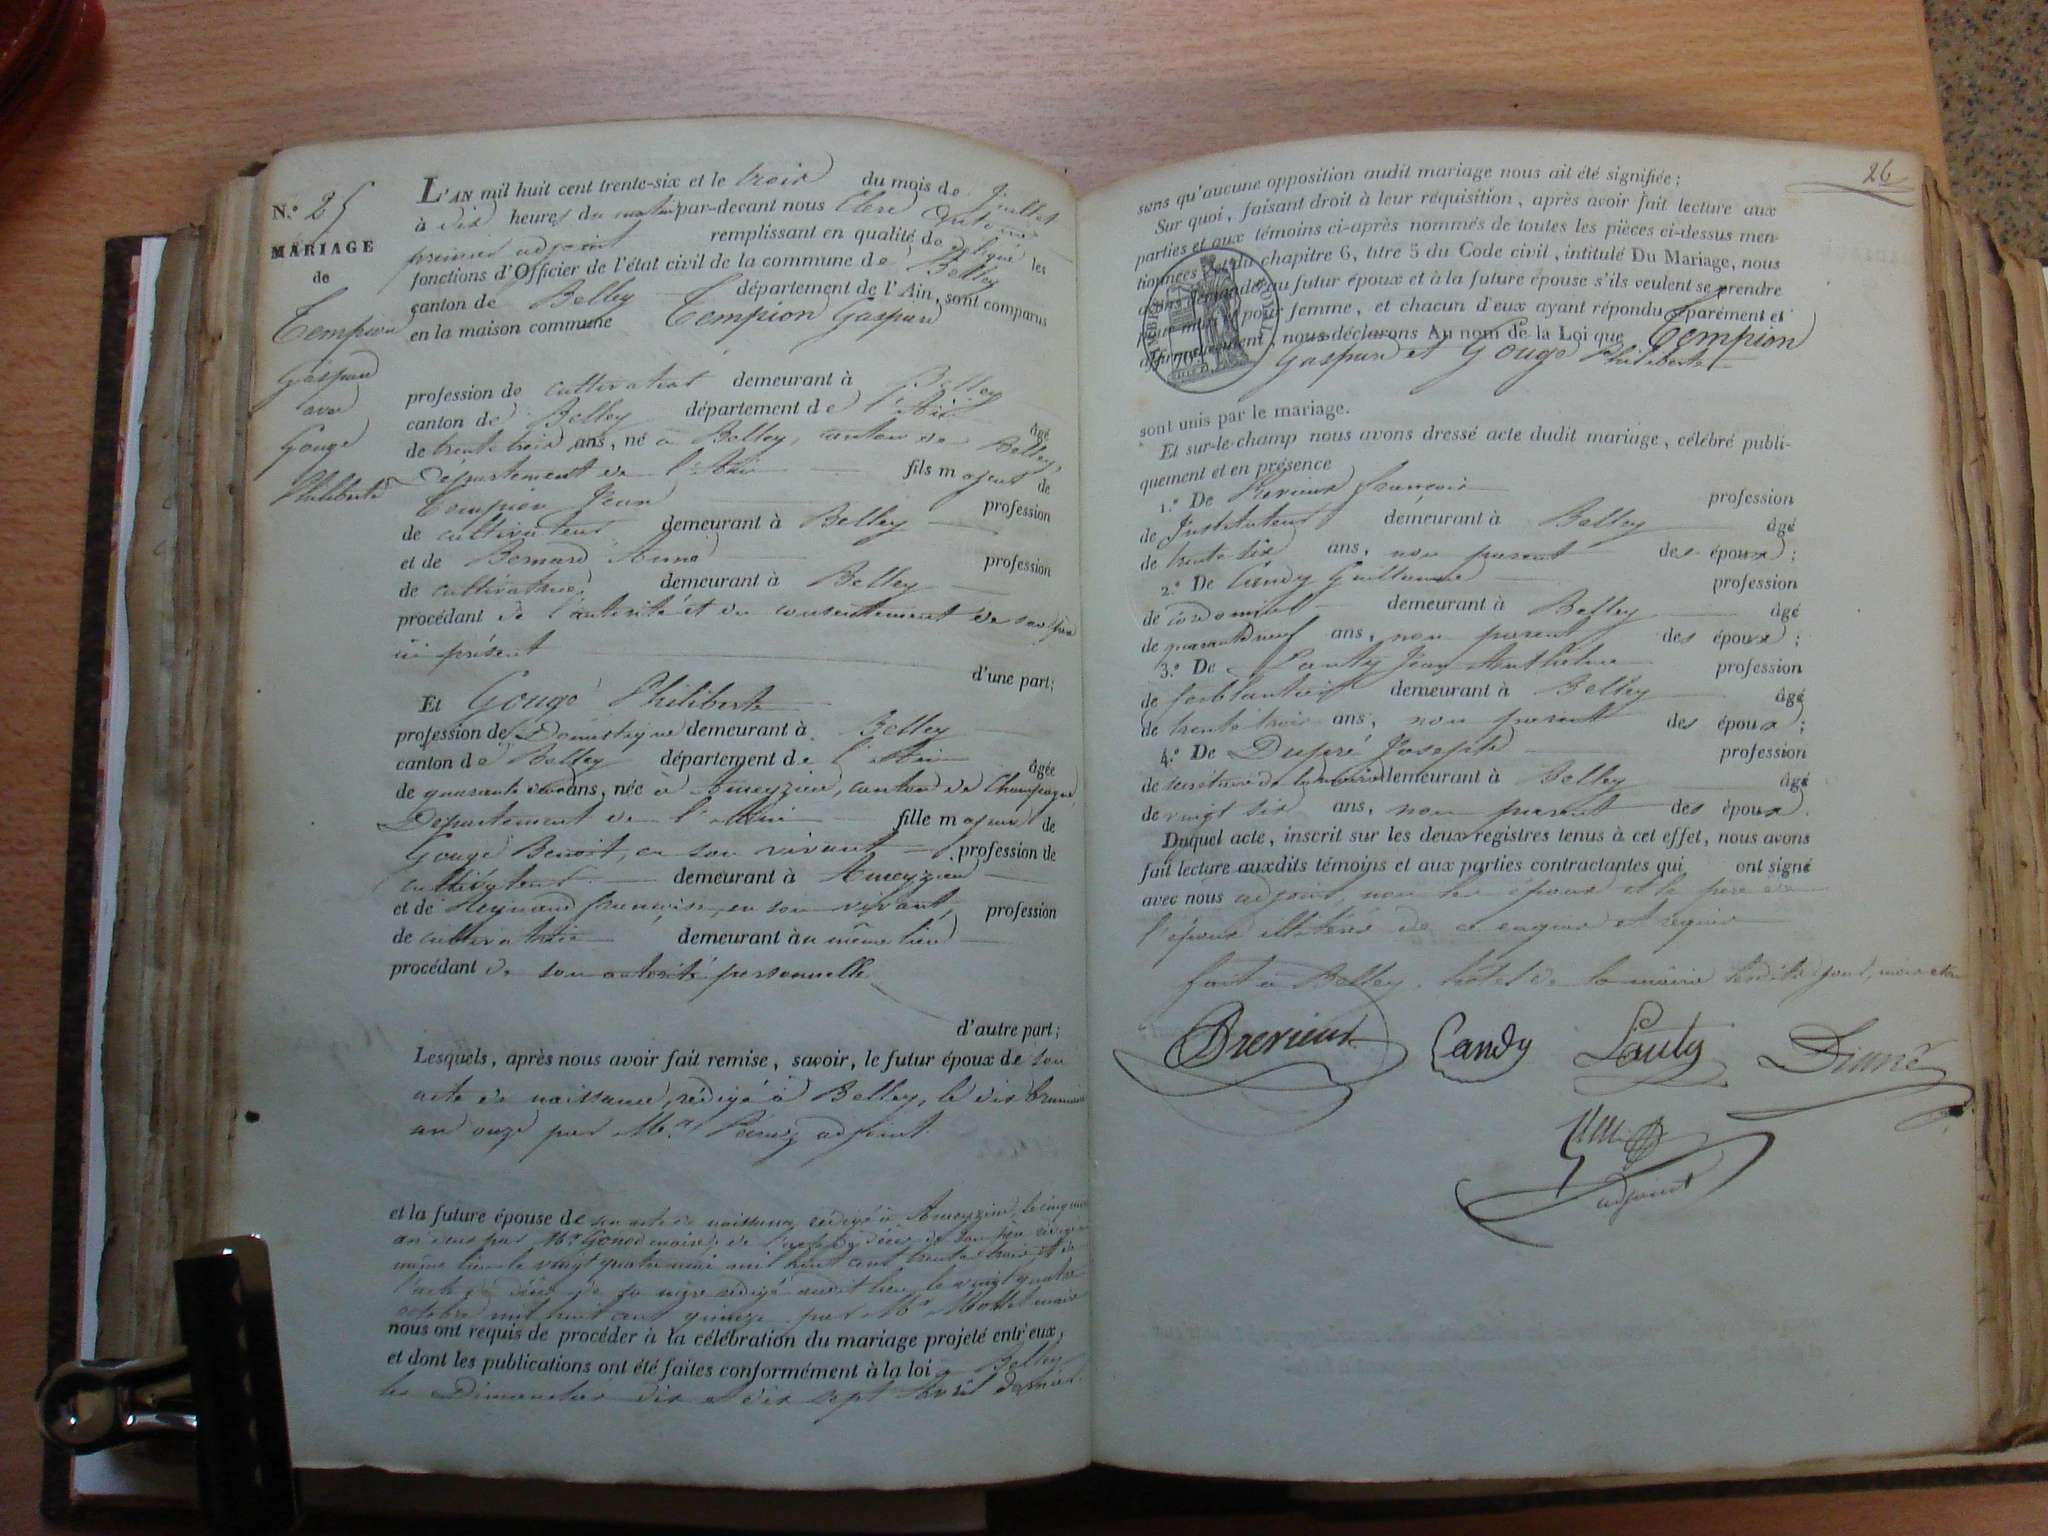 N.° 25
MARIAGE
de
Tempion
Gaspard
avec
Gouge
Philiberte
L'AN mil huit cent trente-six et le trois du mois de Juillet
à dix heures du matin par-devant nous Clerc Antoine
premier adjoint remplissant en qualité de délégué les
fonctions d'Officier de l'état civil de la commune de Belley
canton de Belley département de l'Ain, sont comparus
en la maison commune Tempion Gaspard
profession de cultivateur demeurant à Belley
canton de Belley département de l'Ain âgé
de trente trois ans, né à Belley, canton de Belley,
Département de l'Ain fils majeur de
Tempion Jean profession
de cultivateur demeurant à Belley
et de Bernard Anne profession
de cultivatrice demeurant à Belley
procédant de l'autorité et du consentement de son père
ici présent
d'une part;
Et Gouge Philiberte
profession de Domestique demeurant à Belley
canton de Belley département de l'Ain âgée
de quarante ans, née à Ameyzieu, canton de Champagne,
Département de l'Ain fille majeure de
Gouge Benoit, en son vivant profession de
cultivateur demeurant à Ameyzieu
et de Reynaud françoise, en son vivant, profession
de cultivatrice demeurant au même lieu
procédant de son autorité personnelle
d'autre part;
Lesquels, après nous avoir fait remise, savoir, le futur époux de son
acte de naissance, rédigé à Belley, le dix brumaire
an onze par Mr. adjoint
et la future épouse de son acte de naissance rédigé à Ameyzieu, le cinq
an par Mr. maire, de l'acte de décès de son père rédigé au
même lieu le vingt quatre mai mil huit cent trente trois et de
l'acte de décès de sa mère rédigé audit lieu le vingt quatre
octobre mil huit cent quinze par Mr. maire
nous ont requis de procéder à la célébration du mariage projeté entr'eux,
et dont les publications ont été faites conformément à la loi à Belley
les Dimanches dix et dix sept Avril dernier
26
sans qu'aucune opposition audit mariage nous ait été signifiée;
Sur quoi, faisant droit à leur réquisition, après avoir fait lecture aux
parties et aux témoins ci-après nommés de toutes les pièces ci-dessus men-
tionnées et du chapitre 6, titre 5 du Code civil, intitulé Du Mariage, nous
avons demandé au futur époux et à la future épouse s'ils veulent se prendre
pour mari et pour femme, et chacun d'eux ayant répondu séparément et
affirmativement, nous déclarons Au nom de la Loi que Tempion
Gaspard et Gouge Philiberte
TIMBRE ROYAL
sont unis par le mariage.
Et sur-le-champ nous avons dressé acte dudit mariage, célébré publi-
quement et en présence
1.° De Brevieux françois profession
de Instituteur demeurant à Belley âgé
de trente six ans, non parent des époux;
2.° De Candy Guillaume profession
de cordonnier demeurant à Belley âgé
de quarante neuf ans, non parent des époux;
3.° De Lauty Jean Anthelme profession
de ferblantier demeurant à Belley âgé
de trente trois ans, non parent des époux;
4.° De Joseph profession
de secrétaire de la mairie demeurant à Belley âgé
de vingt six ans, non parent des époux.
Duquel acte, inscrit sur les deux registres tenus à cet effet, nous avons
fait lecture auxdits témoins et aux parties contractantes qui ont signé
avec nous adjoint, non les époux et le père de
l'époux illitérés de ce enquis et requis
fait à Belley, hôtel de la mairie lesdits jour, mois et an
Brevieux Candy Lauty
adjoint